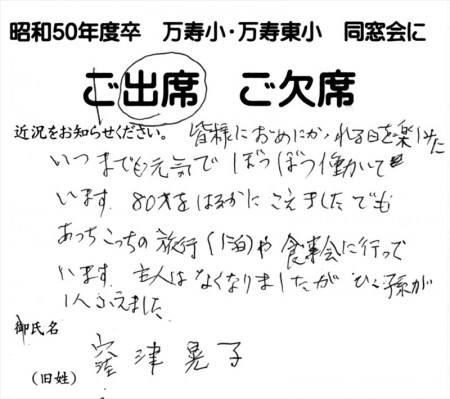 昭和50年度卒 万寿小・万寿東小 同窓会に
ご出席 ご欠席
近況をお知らせください。 皆様におめにかゝれる日を楽しみに
いつまでも元気で ぼつぼつ働いて
います. 80才をはるかに こえました でも
あっちこっちの旅行(1泊)や 食事会に行って
います. 主人は なくなりましたが ひ孫が
1人ふえました.
御氏名
窪津晃子
(旧姓)